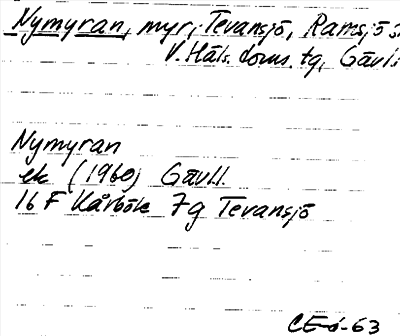 Nymyran, myr, Tevansjö, Ramsjö s
V. Häls. doms. tg, Gävl.
Nymyran
ek (1960) Gävl.l.
16 F Kårböle 7g Tevansjö
CE-6-63